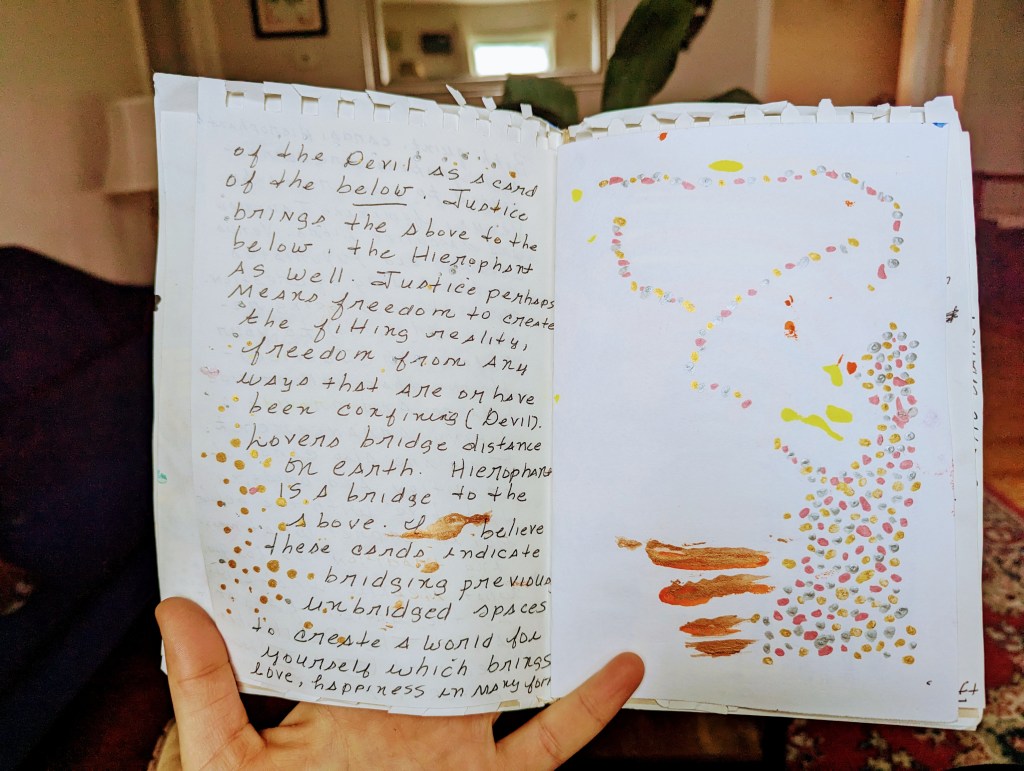 of the Devil as a card
of the below. Justice
brings the above to the
below. the Hierophant
As well. Justice perhaps
means freedom to create
the fitting reality,
freedom from any
ways that are or have
been confining (Devil).
Lovers bridge distance
on earth. Hierophant
is a bridge to the
above. I believe
these cards indicate
bridging previous
unbridged spaces
to create a world for
yourself which brings
love, happiness in many